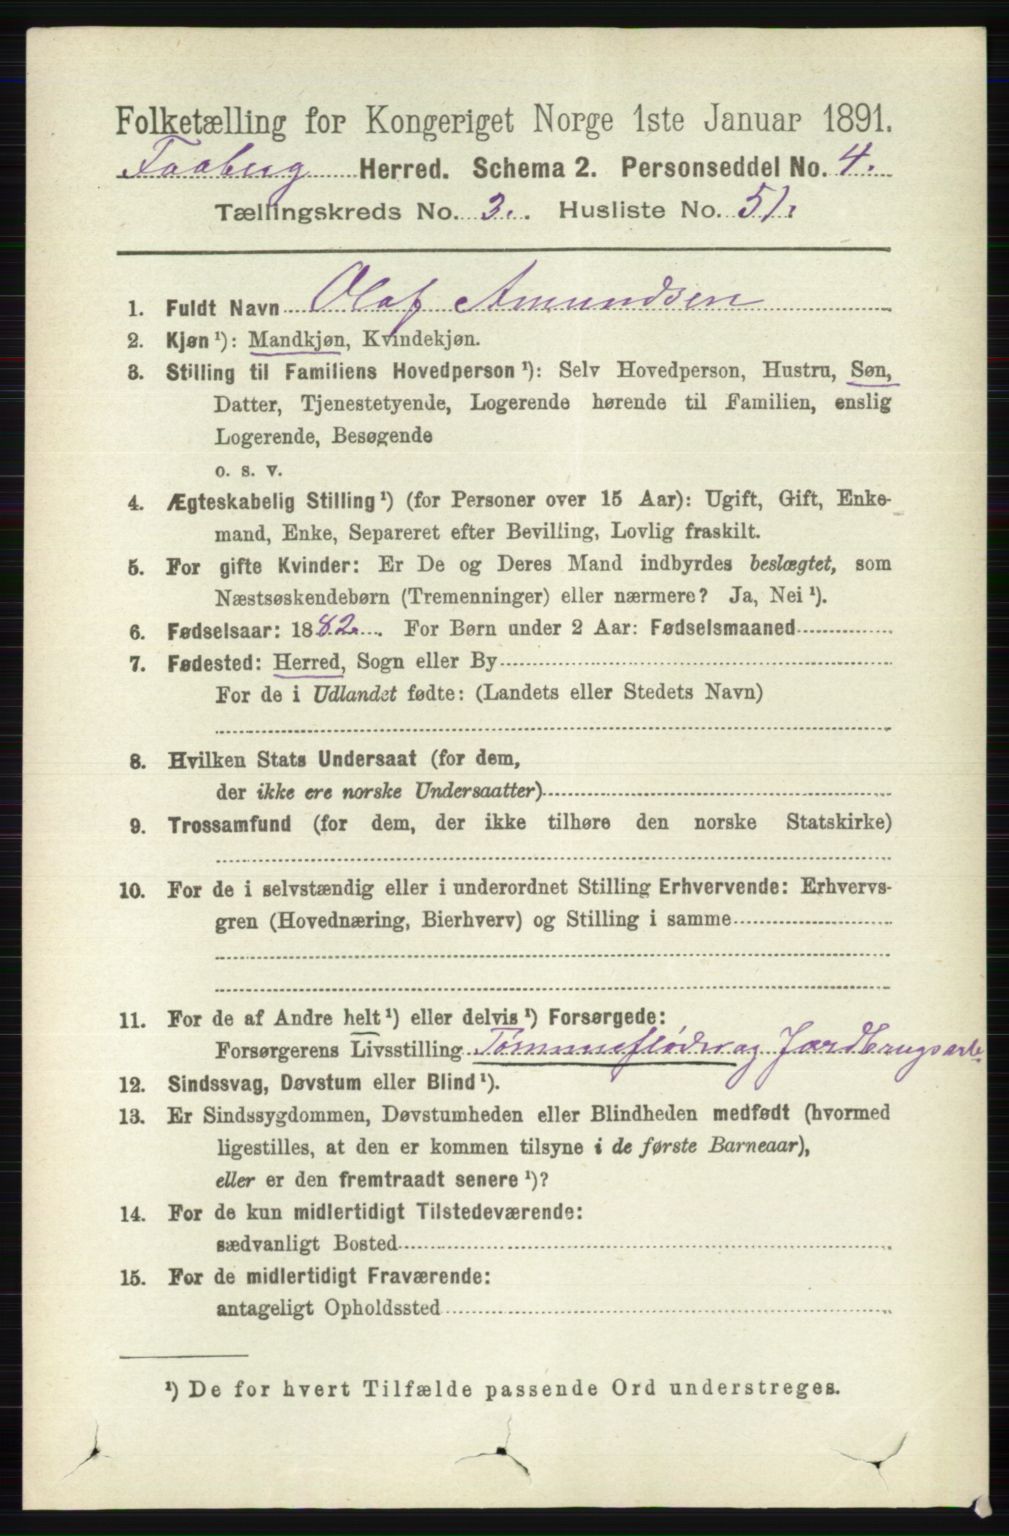 Folketælling for Kongeriget Norge 1ste Januar 1891.
Faaberg Herred. Schema 2. Personseddel No. 4.
Tællingskreds No. 3. Husliste No. 51.
1. Fuldt Navn Olaf Amundsen
2. Kjøn ¹): Mandkjøn, Kvindekjøn.
3. Stilling til Familiens Hovedperson ¹): Selv Hovedperson, Hustru, Søn,
Datter, Tjenestetyende, Logerende hørende til Familien, enslig
Logerende, Besøgende
o. s. v.
4. Ægteskabelig Stilling ¹) (for Personer over 15 Aar): Ugift, Gift, Enke-
mand, Enke, Separeret efter Bevilling, Lovlig fraskilt.
5. For gifte Kvinder: Er De og Deres Mand indbyrdes beslægtet, som
Næstsøskendebørn (Tremenninger) eller nærmere? Ja, Nei ¹).
6. Fødselsaar: 1882. For Børn under 2 Aar: Fødselsmaaned
7. Fødested: Herred, Sogn eller By
For de i Udlandet fødte: (Landets eller Stedets Navn)
8. Hvilken Stats Undersaat (for dem,
der ikke ere norske Undersaatter)
9. Trossamfund (for dem, der ikke tilhøre den norske Statskirke)
10. For de i selvstændig eller i underordnet Stilling Erhvervende: Erhvervs-
gren (Hovednæring, Bierhverv) og Stilling i samme
11. For de af Andre helt ¹) eller delvis ¹) Forsørgede:
Forsørgerens Livsstilling Tømmefløder og Jordbrugsarb
12. Sindssvag, Døvstum eller Blind ¹).
13. Er Sindssygdommen, Døvstumheden eller Blindheden medfødt (hvormed
ligestilles, at den er kommen tilsyne i de første Barneaar),
eller er den fremtraadt senere ¹)?
14. For de kun midlertidigt Tilstedeværende:
sædvanligt Bosted
15. For de midlertidigt Fraværende:
antageligt Opholdssted
¹) De for hvert Tilfælde passende Ord understreges.